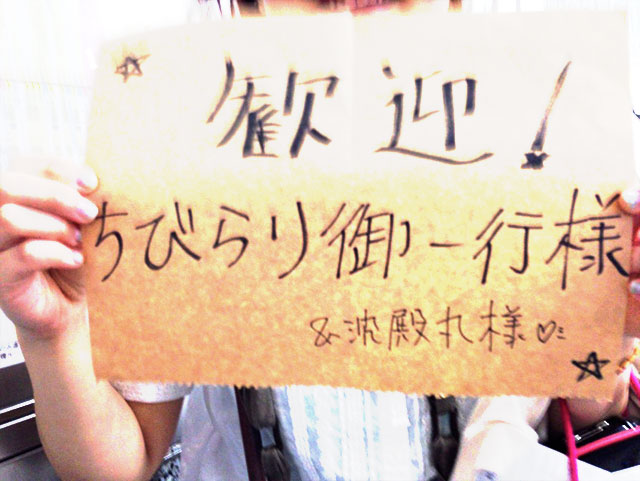 歓迎!
ちびらり御一行様
&沈殿丸様♡